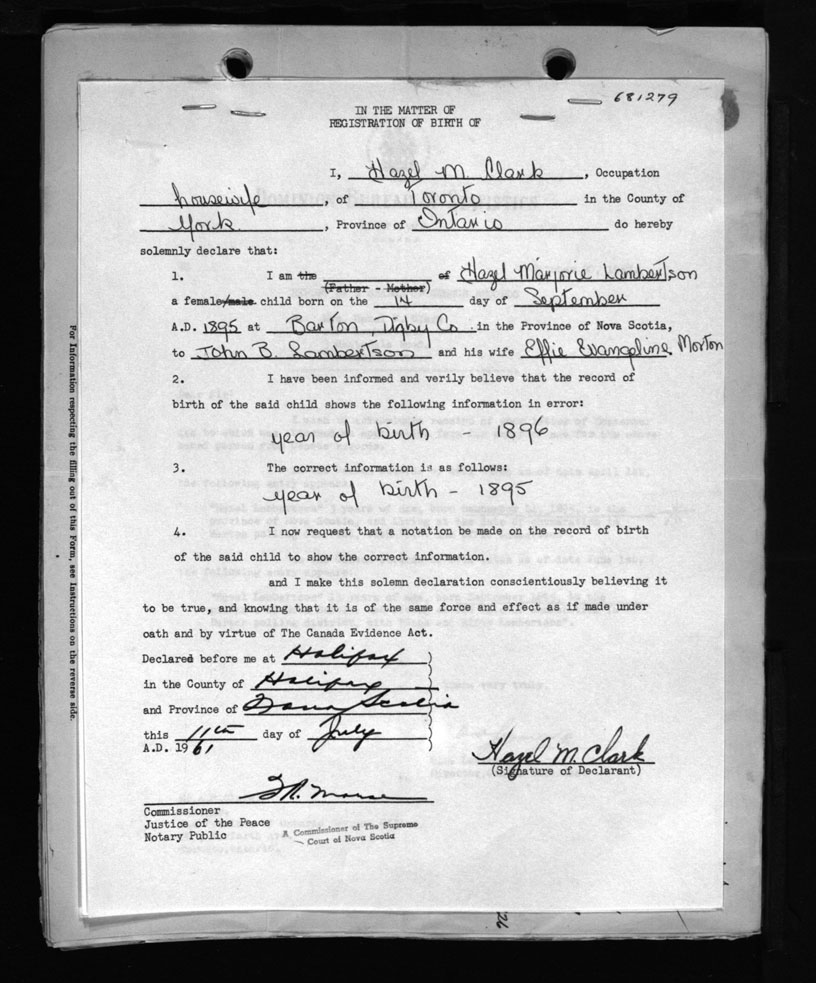 681279
IN THE MATTER OF
REGISTRATION OF BIRTH OF
I, Hazel M. Clark, Occupation
housewife, of Toronto in the County of
York, Province of Ontario do hereby
solemnly declare that:
1. I am the of Hazel Marjorie Lambertson
(Father - Mother)
a female/male child born on the 14 day of September
A.D. 1895 at Barton, Digby Co. in the Province of Nova Scotia,
to John B. Lambertson and his wife Effie Evangeline Morton
2. I have been informed and verily believe that the record of
birth of the said child shows the following information in error:
year of birth - 1896
3. The correct information is as follows:
year of birth - 1895
4. I now request that a notation be made on the record of birth
of the said child to show the correct information.
and I make this solemn declaration conscientiously believing it
to be true, and knowing that it is of the same force and effect as if made under
oath and by virtue of The Canada Evidence Act.
Declared before me at Halifax )
in the County of Halifax )
and Province of Nova Scotia )
this 11th day of July )
A.D. 1961 )
Hazel M. Clark
(Signature of Declarant)
Commissioner
Justice of the Peace
Notary Public
A Commissioner of The Supreme
Court of Nova Scotia
For Information respecting the filling out of this Form, see Instructions on the reverse side.
26